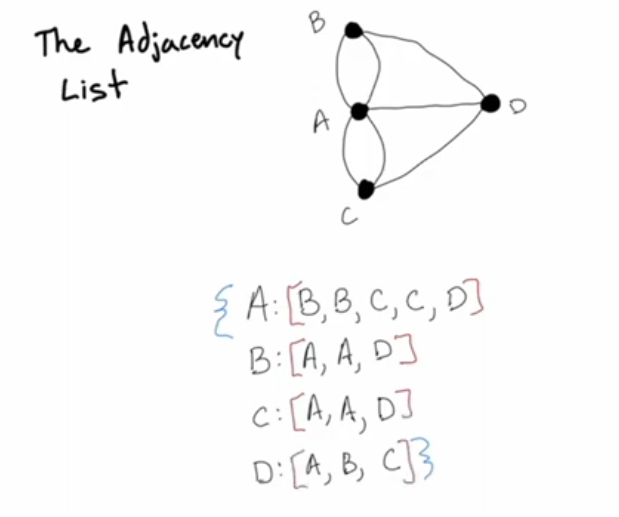 The Adjacency
List
B
A
D
C
{ A:[B,B, C, C, D]
B:[A, A, D]
C:[A, A, D]
D:[A, B, C]}